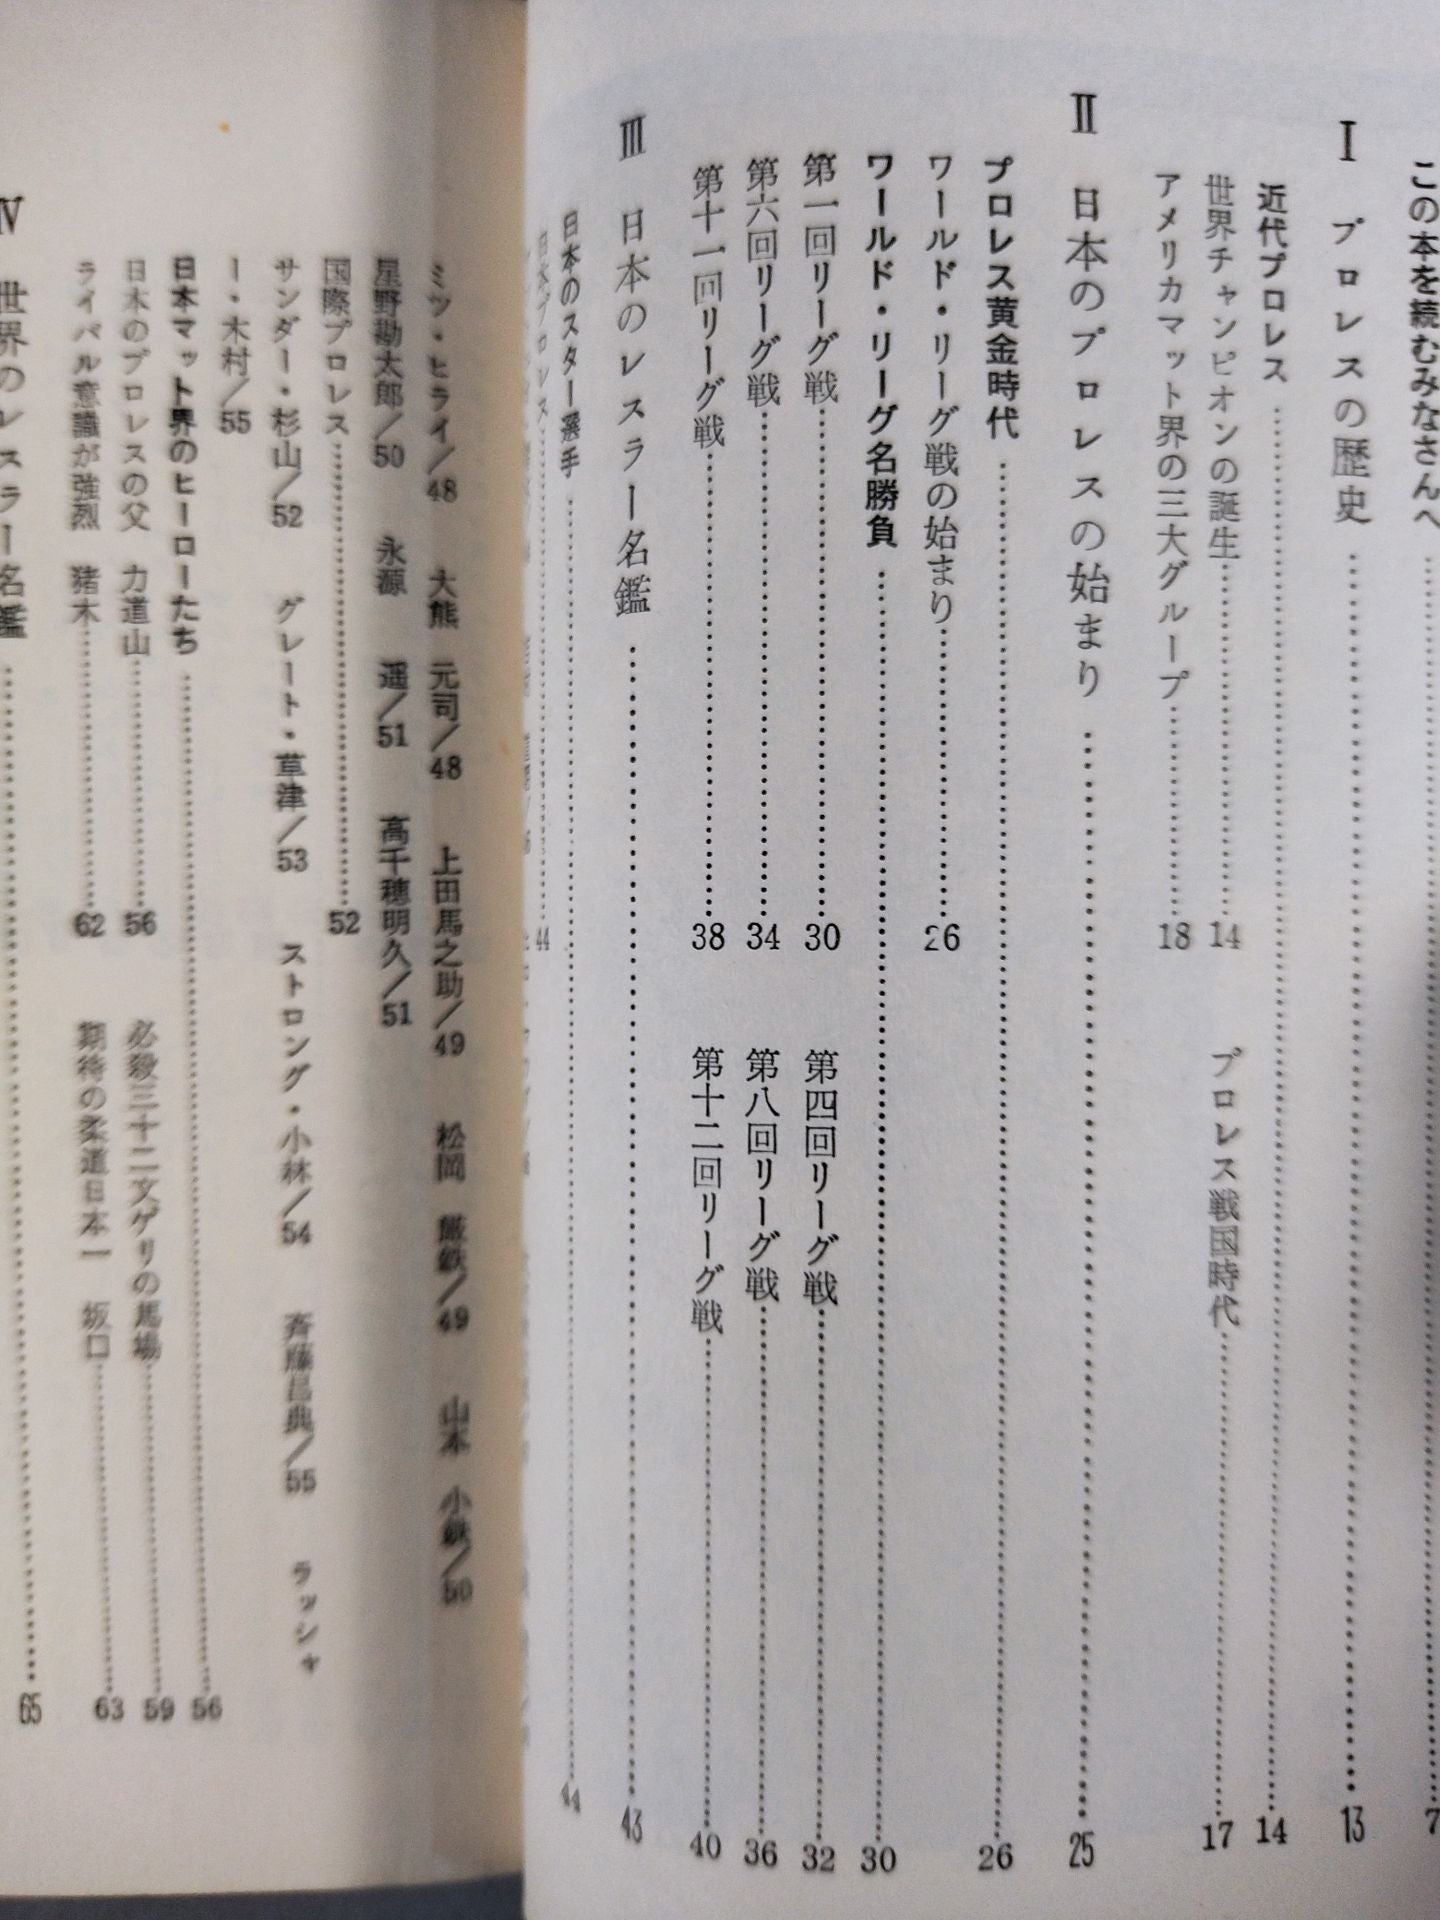 この本を続むみなさんへ……7
Ⅰ プロレスの歴史……13
近代プロレス……14
世界チャンピオンの誕生……14 プロレス戦国時代……17
アメリカマット界の三大グループ……18
Ⅱ 日本のプロレスの始まり……25
プロレス黄金時代……26
ワールド・リーグ戦の始まり……26
ワールド・リーグ名勝負……30
第一回リーグ戦……30 第四回リーグ戦……32
第六回リーグ戦……34 第八回リーグ戦……36
第十一回リーグ戦……38 第十二回リーグ戦……40
Ⅲ 日本のレスラー名鑑……43
日本のスター選手……44
日本プロレス……44
ミツ・ヒライ／48 大熊 元司／48 上田馬之助／49 松岡 巌鉄／49 山本 小鉄／50
星野勘太郎／50 永源 遥／51 高千穂明久／51
国際プロレス……52
サンダー・杉山／52 グレート・草津／53 ストロング・小林／54 斉藤昌典／55 ラッシャ
ー・木村／55
日本マット界のヒーローたち……56
日本のプロレスの父 力道山……56 必殺三十二文ゲリの馬場……59
ライバル意識が強烈 猪木……62 期待の柔道日本一 坂口……63
Ⅳ 世界のレスラー名鑑……65